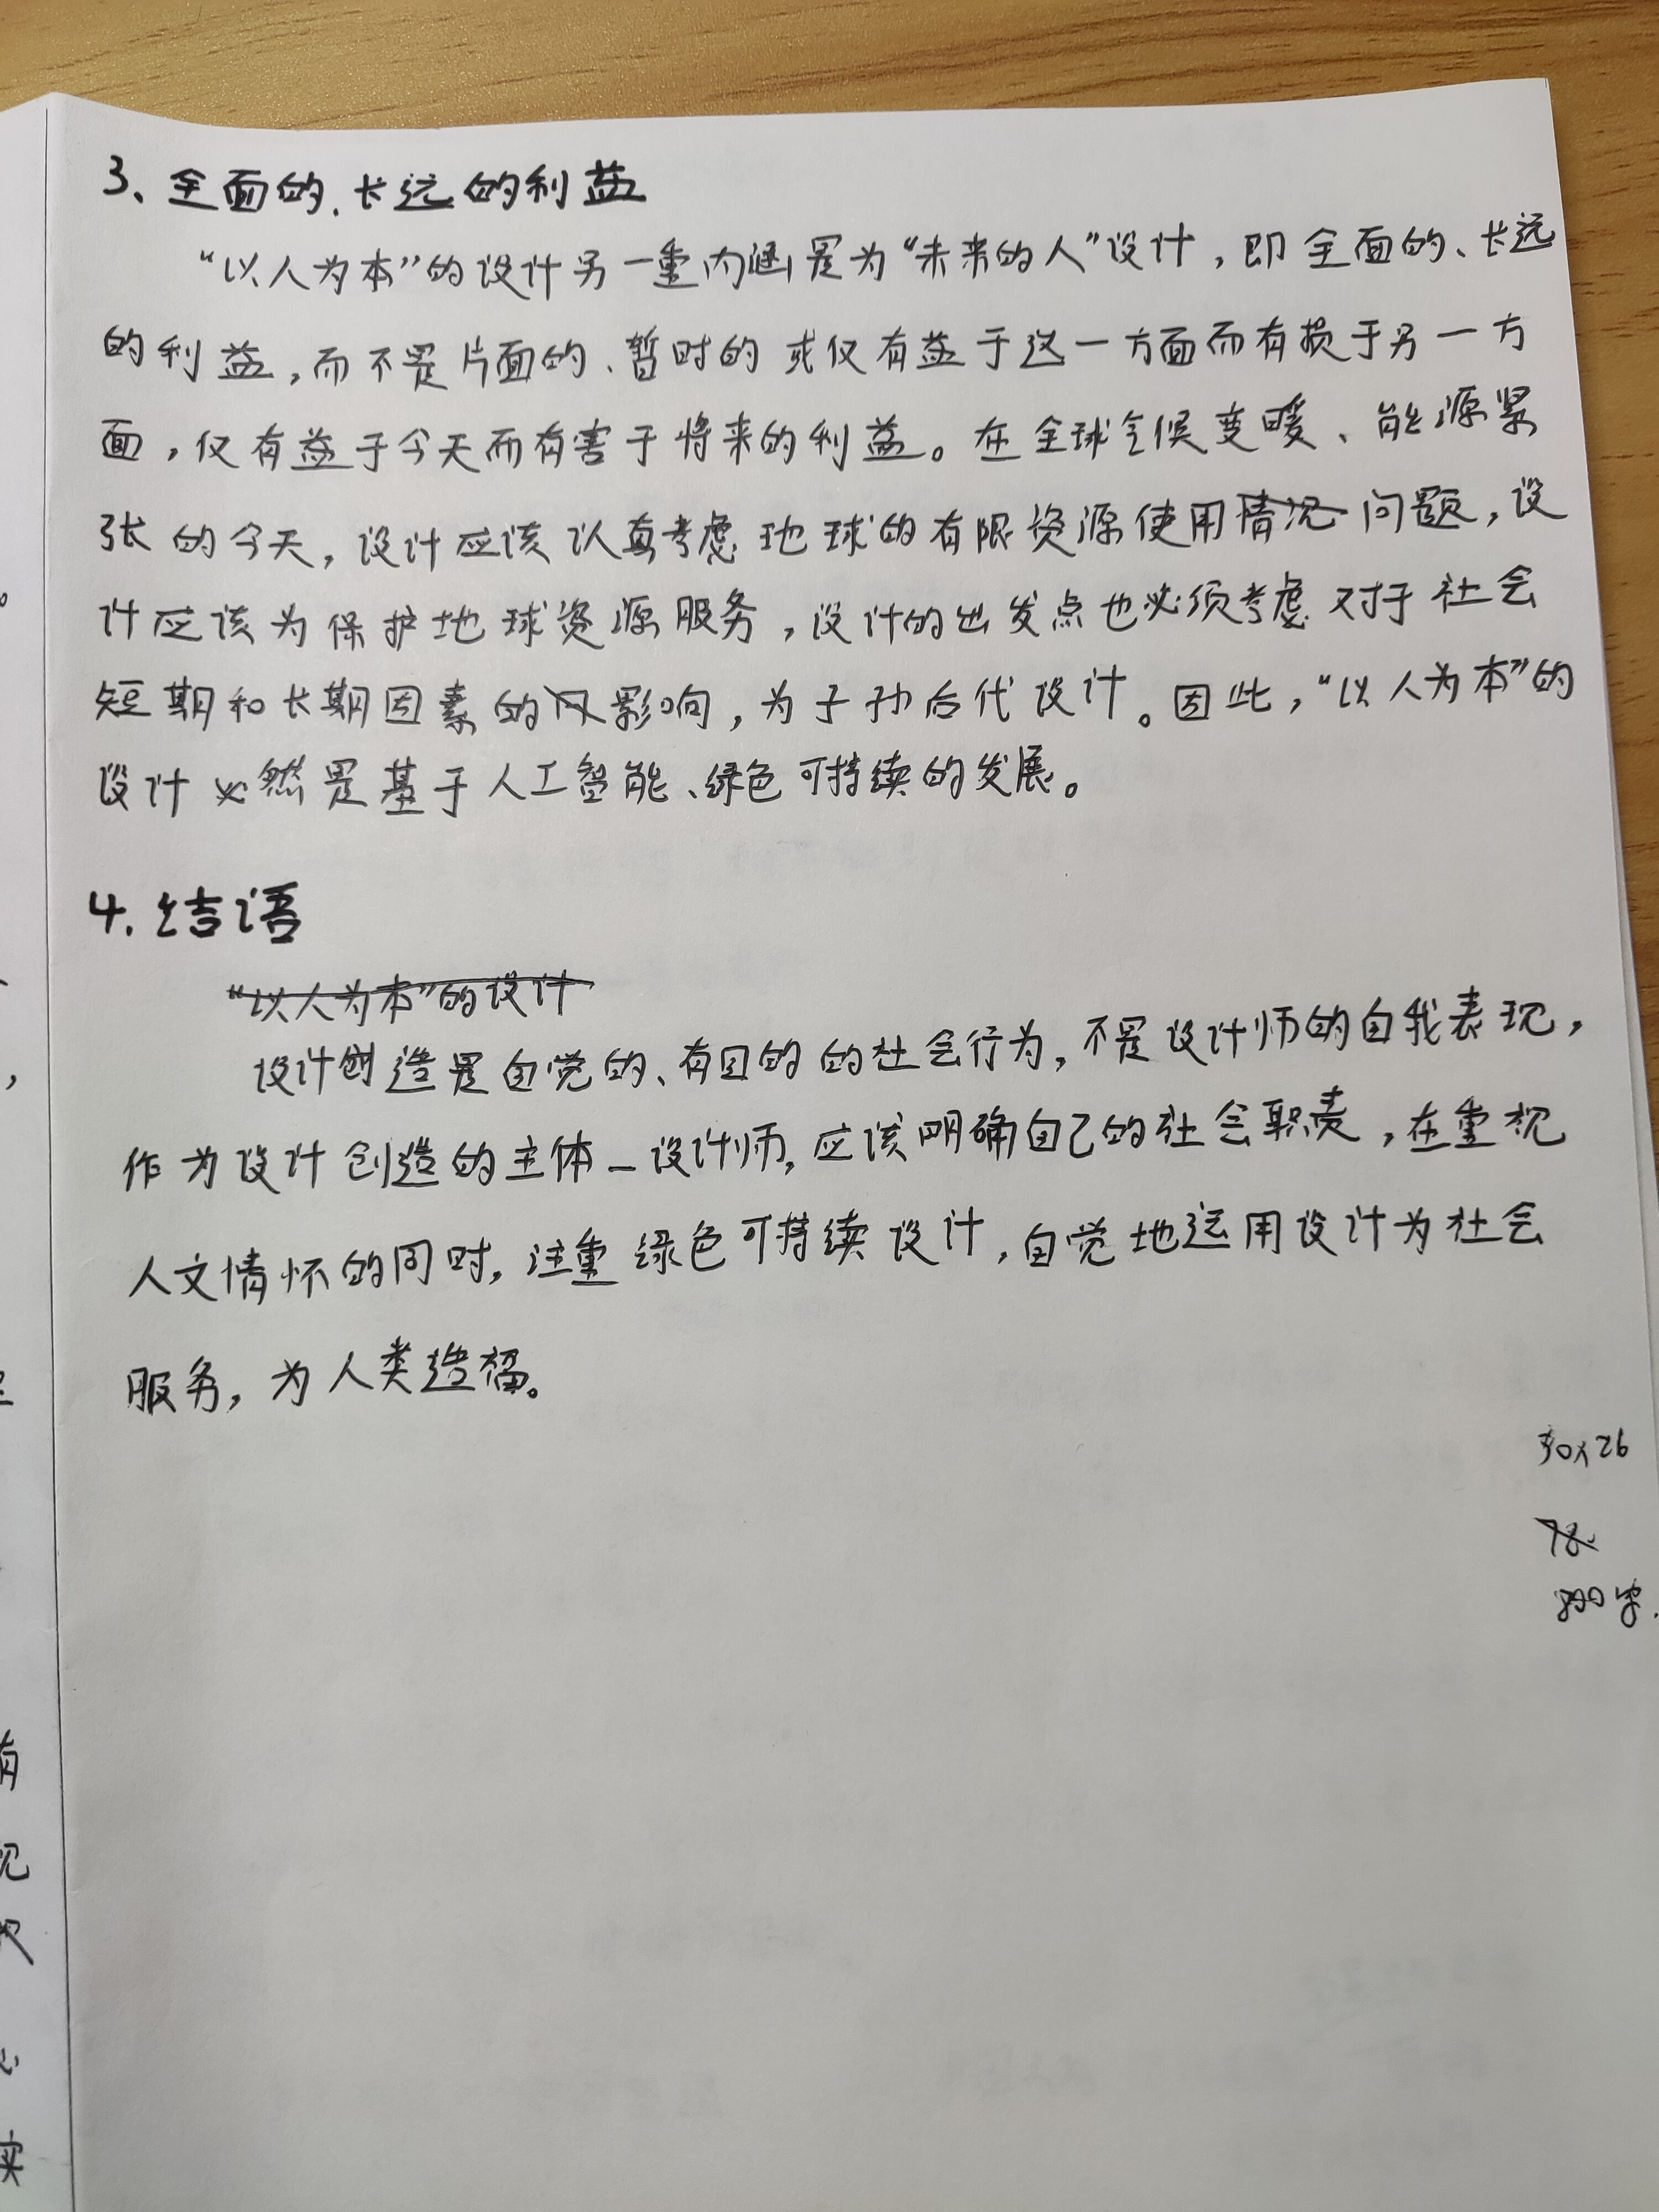 3、全面的、长远的利益
“以人为本”的设计另一重内涵是为“未来的人”设计，即全面的、长远
的利益，而不是片面的、暂时的或仅有益于这一方面而有损于另一方
面，仅有益于今天而有害于将来的利益。在全球气候变暖、能源紧
张的今天，设计应该认真考虑地球的有限资源使用情况问题，设
计应该为保护地球资源服务，设计的出发点也必须考虑对于社会
短期和长期因素的影响，为子孙后代设计。因此，“以人为本”的
设计必然是基于人工智能、绿色可持续的发展。
4.结语
“以人为本”的设计
设计创造是自觉的、有目的的社会行为，不是设计师的自我表现，
作为设计创造的主体—设计师，应该明确自己的社会职责，在重视
人文情怀的同时，注重绿色可持续设计，自觉地运用设计为社会
服务，为人类造福。
30×26
78
800字.